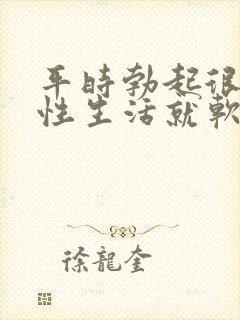 平時勃起很
性生活就軟
徐龍奎